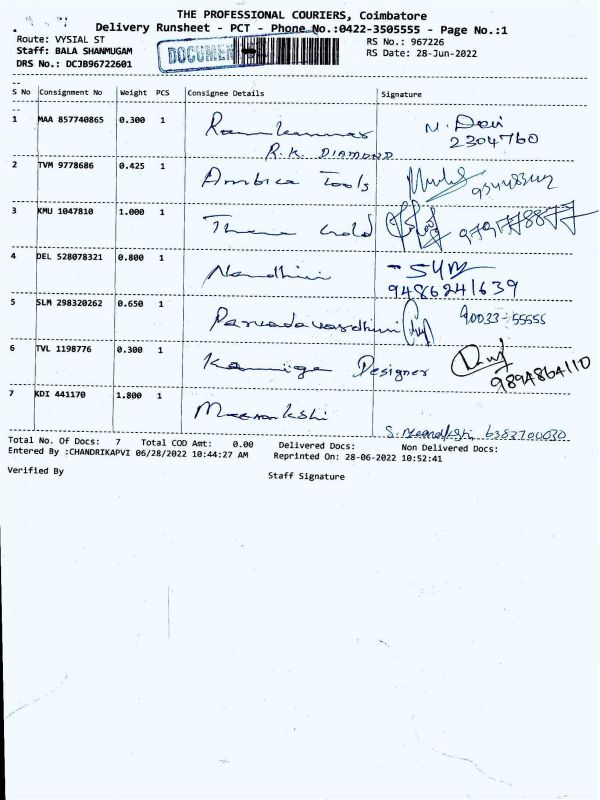 THE PROFESSIONAL COURIERS, Coimbatore
Delivery Runsheet - PCT - Phone No.:0422-3505555 - Page No.:1
Route: VYSIAL ST RS No.: 967226
Staff: BALA SHANMUGAM DOCUMEN RS Date: 28-Jun-2022
DRS No.: DCJB96722601
S No Consignment No Weight PCS Consignee Details Signature
1 MAA 857740865 0.300 1 Ramkumar N. Devi
R.K. DIAMOND 2304760
2 TVM 9778686 0.425 1 Ambica Tools
3 KMU 1047810 1.000 1 Gold
4 DEL 528078321 0.800 1 Nandhini
9486241639
5 SLM 298320262 0.650 1 90033-55555
6 TVL 1198776 0.300 1 Designer
9894864110
7 KDI 441170 1.800 1 Meenakshi
S. Meenakshi, 6382700030
Total No. Of Docs: 7 Total COD Amt: 0.00 Delivered Docs: Non Delivered Docs:
Entered By :CHANDRIKAPVI 06/28/2022 10:44:27 AM Reprinted On: 28-06-2022 10:52:41
Verified By Staff Signature